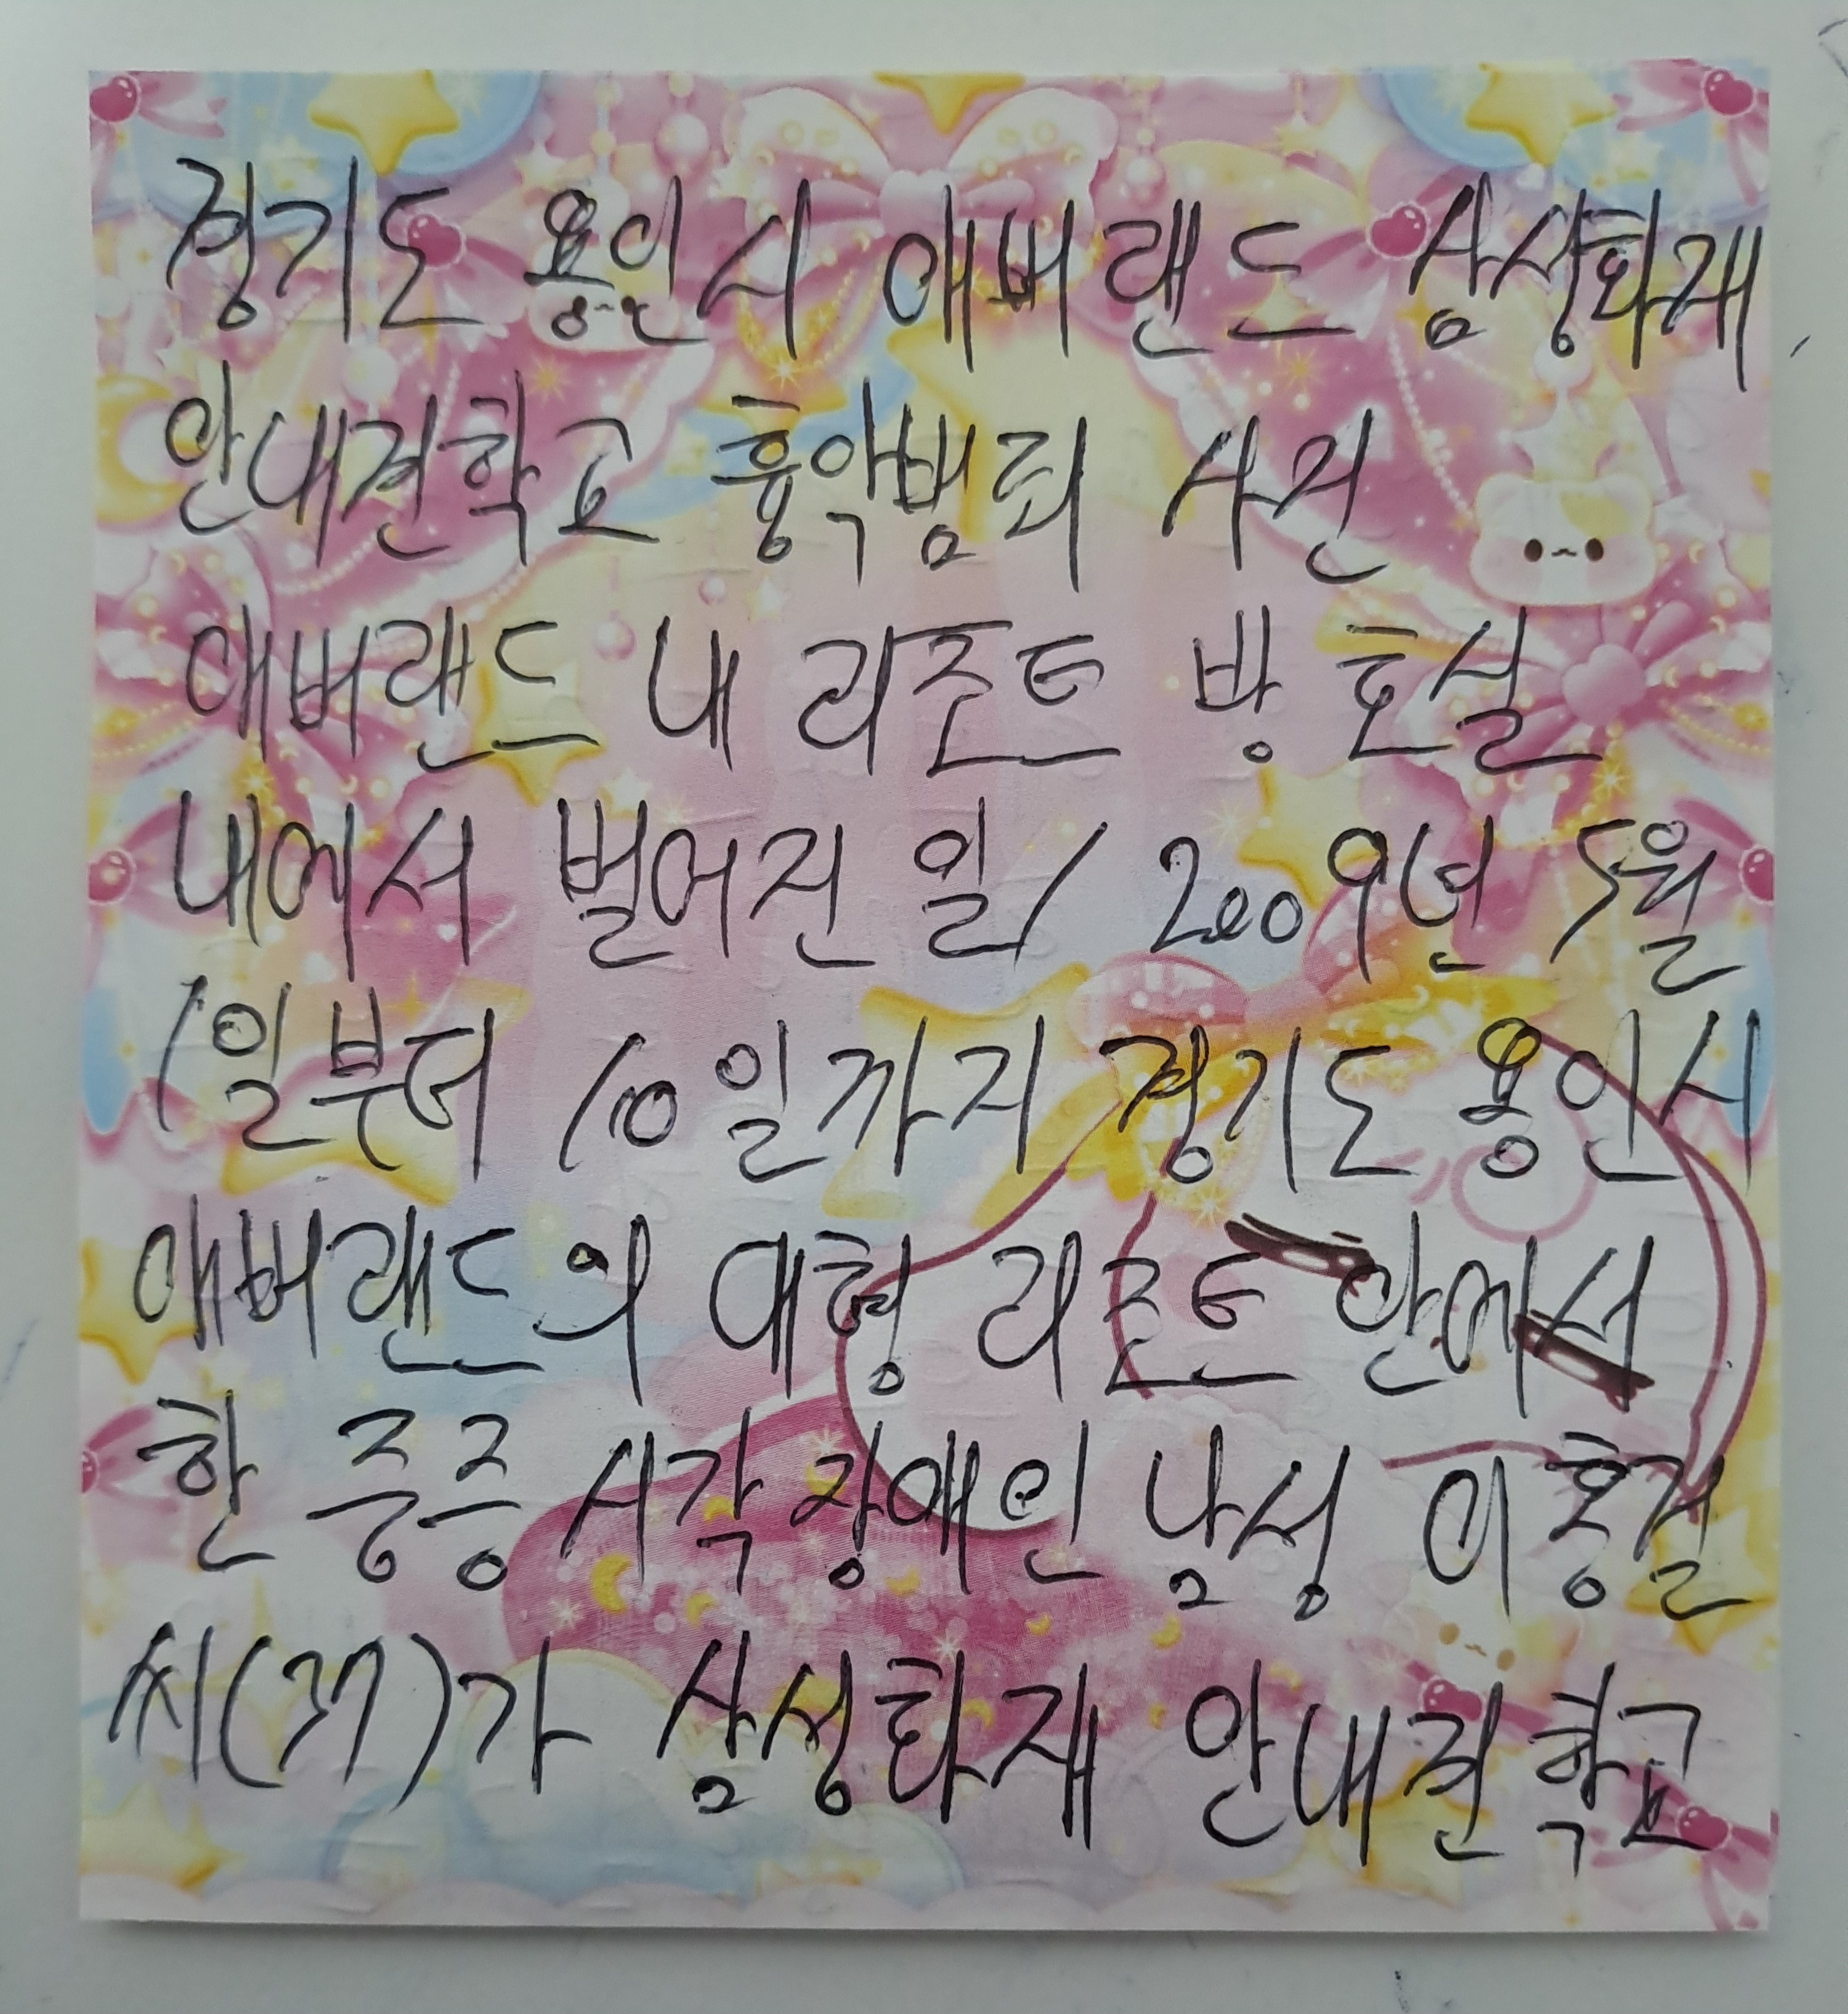 경기도 용인시 애버랜드 삼성화재
안내견학교 흉악범죄 사건
애버랜드 내 리조트 방 호실
내에서 벌어진 일/ 2009년 5월
1일부터 10일까지 경기도 용인시
애버랜드의 대형 리조트 안에서
한 중증 시각 장애인 남성 이흥걸
씨(37)가 삼성화재 안내견 학교